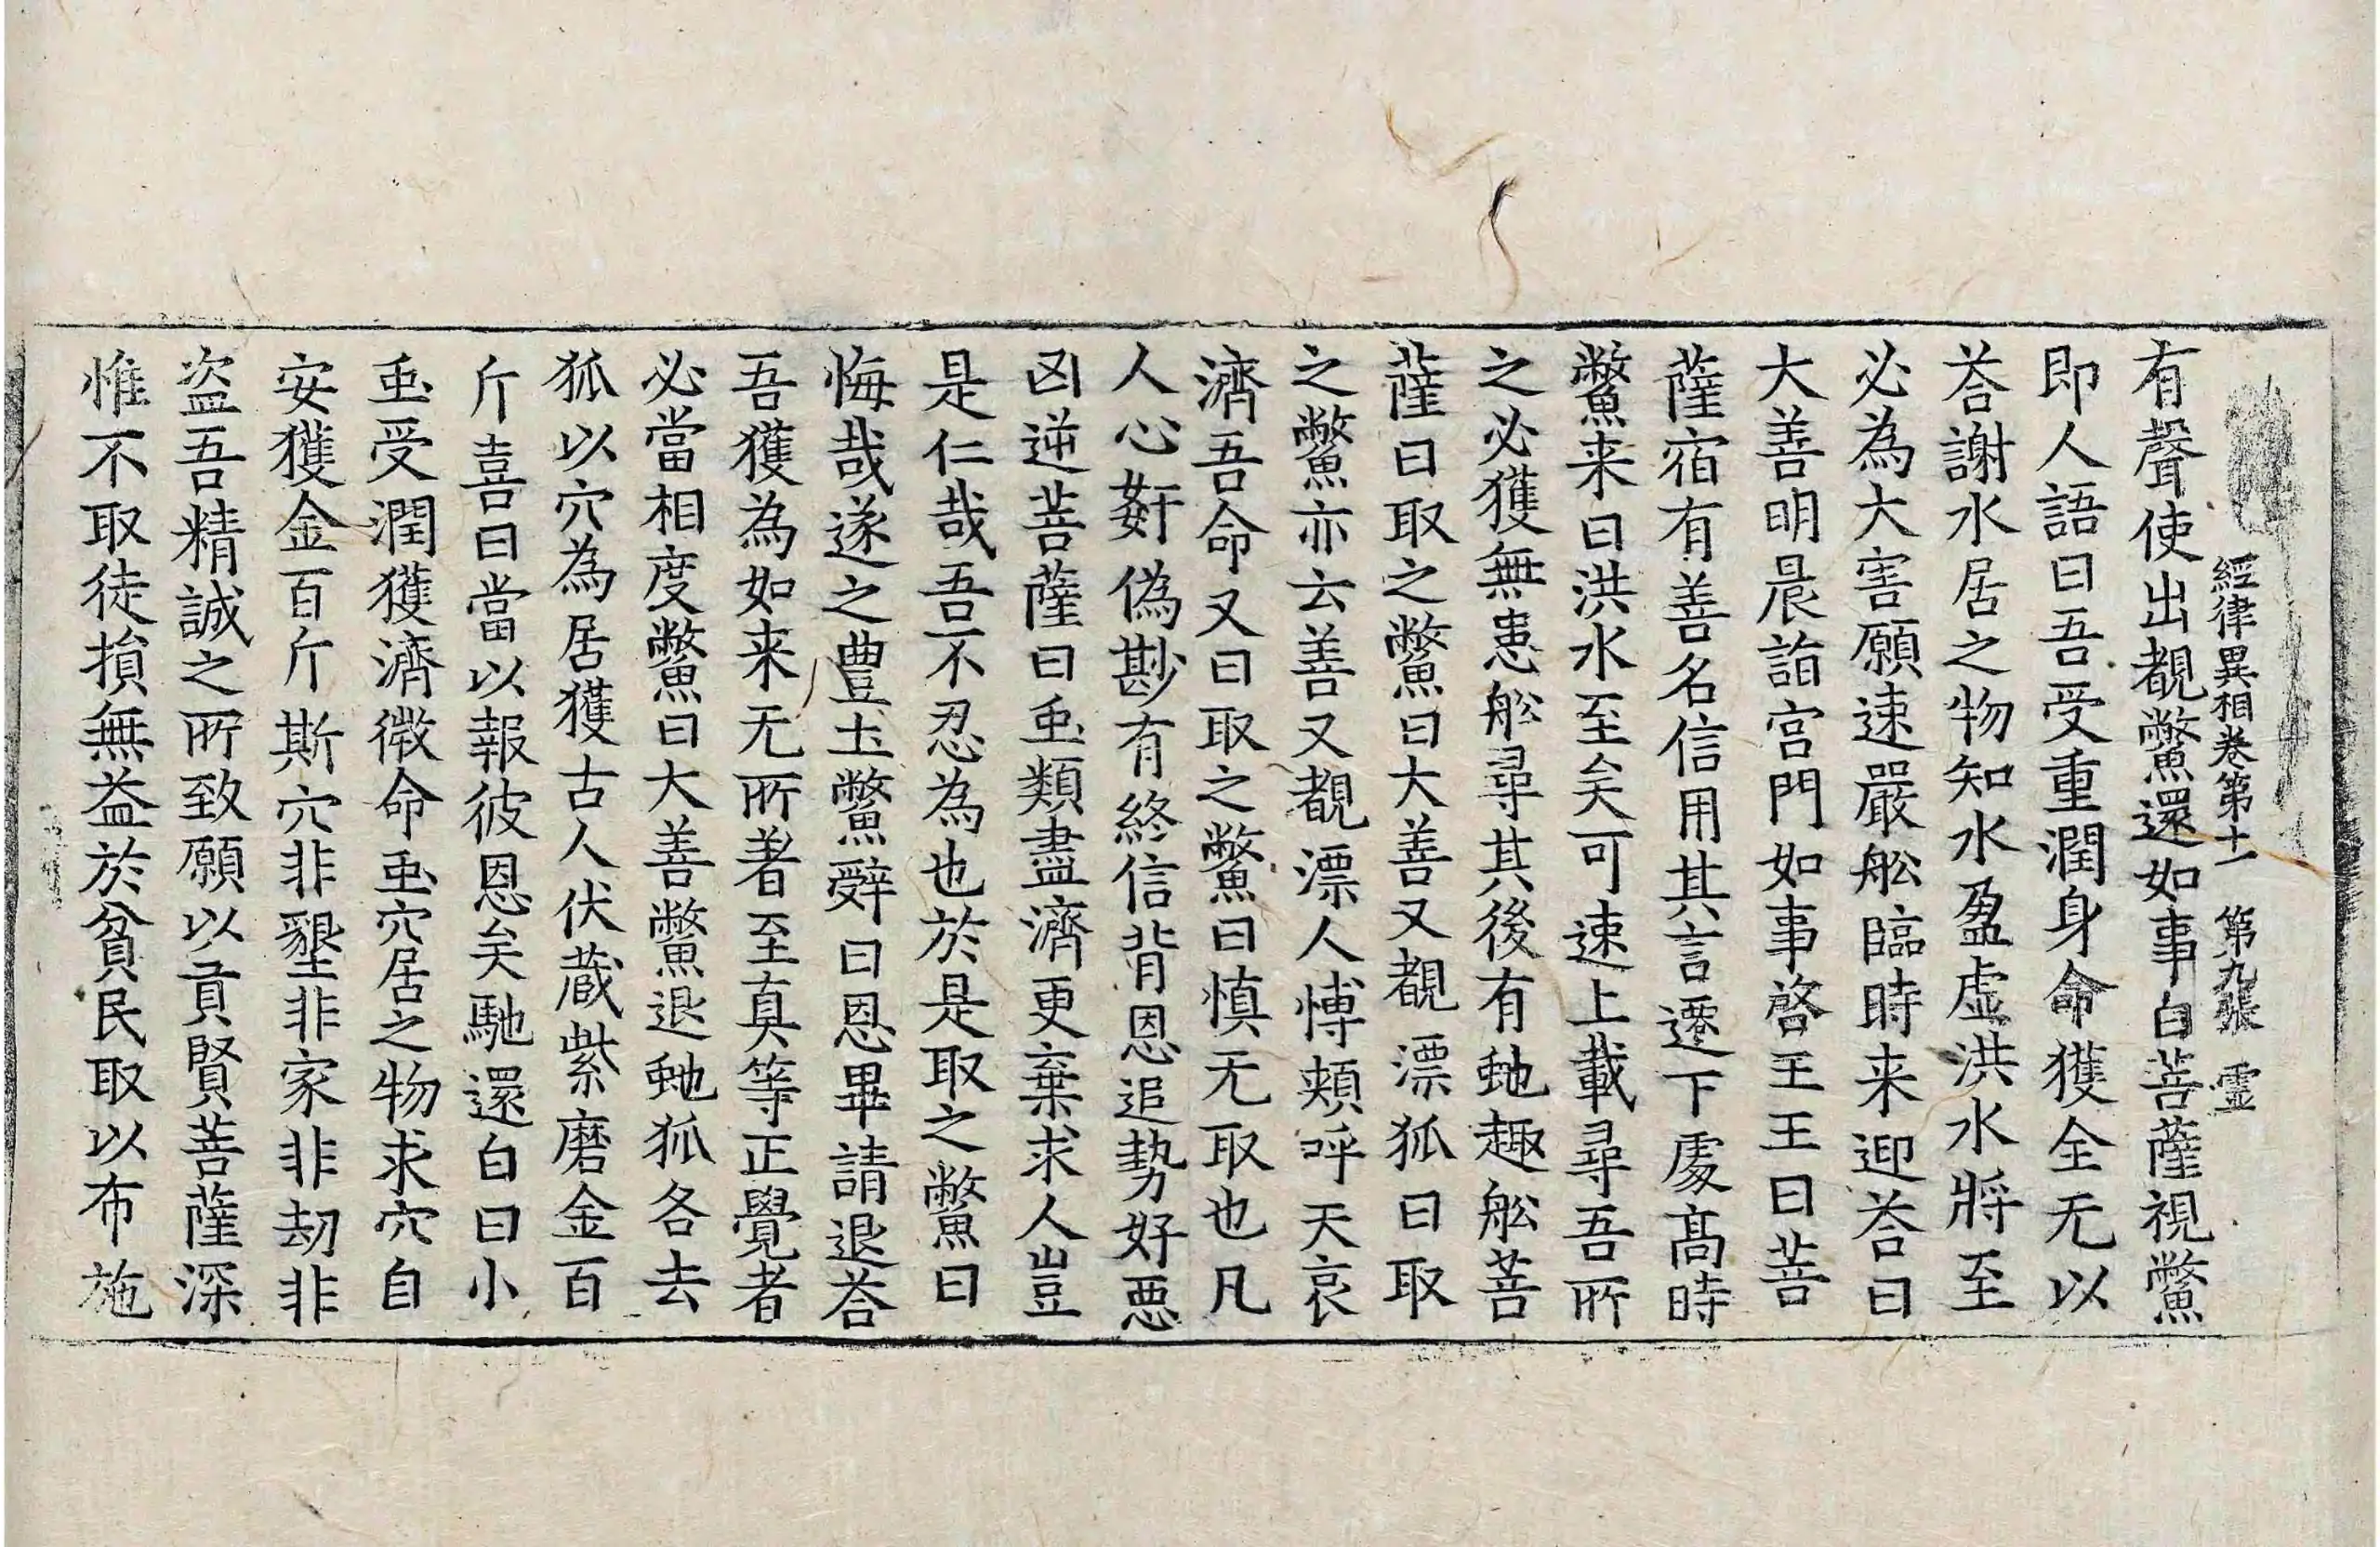 經律異相卷第十一 第九張 霊
有聲使出覩鱉還如事白菩薩視鱉
即人語曰吾受重潤身命獲全无以
荅謝水居之物知水盈虛洪水將至
必為大害願速嚴舩臨時来迎荅曰
大善明晨詣宫門如事啓王王曰菩
薩宿有善名信用其言遷下處髙時
鱉来曰洪水至矣可速上載尋吾所
之必獲無患舩尋其後有虵趣舩菩
薩曰取之鱉曰大善又覩漂狐曰取
之鱉亦云善又覩漂人愽頰呼天哀
濟吾命又曰取之鱉曰慎无取也凡
人心姧偽尠有終信背恩追勢好惡
凶逆菩薩曰虫類盡濟更棄求人豈
是仁哉吾不忍為也於是取之鱉曰
悔哉遂之豊土鱉辝曰恩畢請退荅
吾獲為如来无所著至真等正覺者
必當相度鱉曰大善鱉退虵狐各去
狐以穴為居獲古人伏蔵紫磨金百
斤喜曰當以報彼恩矣馳還白曰小
虫受潤獲濟微命虫穴居之物求穴自
安獲金百斤斯穴非墾非家非劫非
盗吾精誠之所致願以貢賢菩薩深
惟不取徒損無益於貧民取以布施